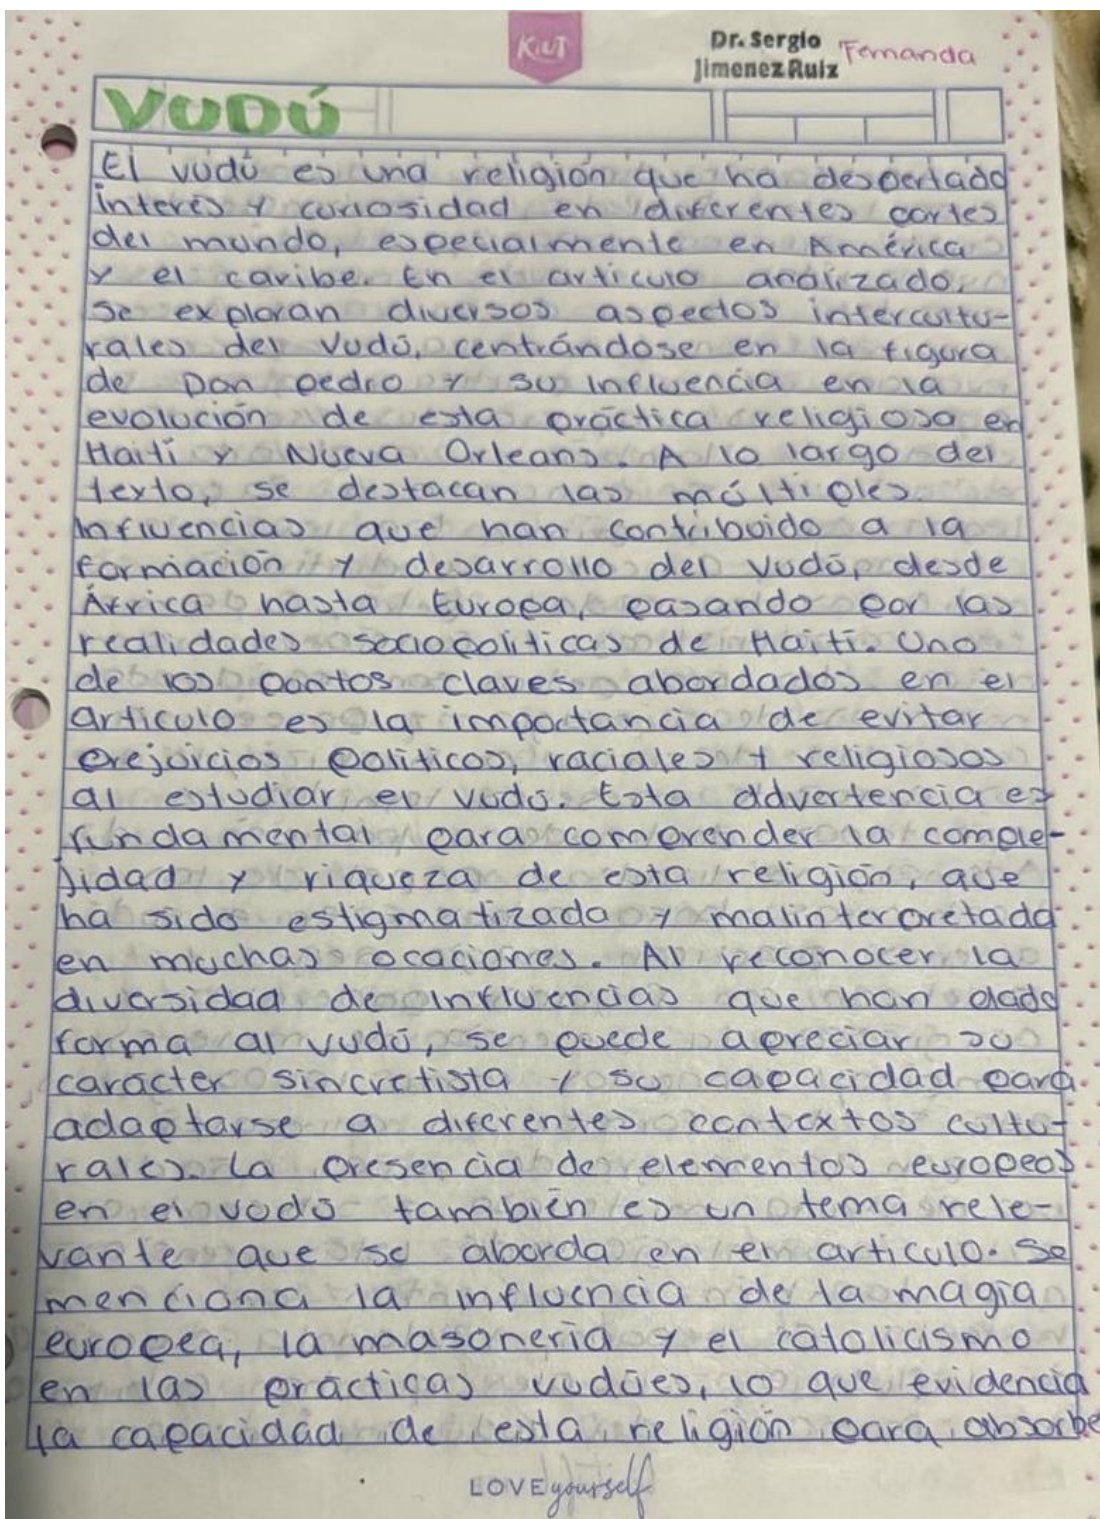 KIUT
Dr. Sergio
Jimenez Ruiz
Fernanda
VUDÚ
El vudú es una religión que ha despertado
interés y curiosidad en diferentes partes
del mundo, especialmente en América
y el caribe. En el artículo analizado,
se exploran diversos aspectos intercultu-
rales del vudú, centrándose en la figura
de Don pedro y su influencia en la
evolución de esta práctica religiosa en
Haití y Nueva Orleans. A lo largo del
texto, se destacan las múltiples
influencias que han contribuido a la
formación y desarrollo del vudú, desde
África hasta Europa, pasando por las
realidades sociopolíticas de Haití. Uno
de los pontos claves abordados en el
artículo es la importancia de evitar
prejuicios políticos, raciales y religiosos
al estudiar el vudú. Esta advertencia es
fundamental para comprender la comple-
jidad y riqueza de esta religión, que
ha sido estigmatizada y malinterpretada
en muchas ocaciones. Al reconocer la
diversidad de influencias que han dado
forma al vudú, se puede apreciar su
carácter sincretista y su capacidad para
adaptarse a diferentes contextos cultu-
rales. La presencia de elementos europeos
en el vudú también es un tema rele-
vante que se aborda en el artículo. Se
menciona la influencia de la magia
europea, la masonería y el catolicismo
en las prácticas vudúes, lo que evidencia
la capacidad de esta religión para absorbe
LOVE yourself